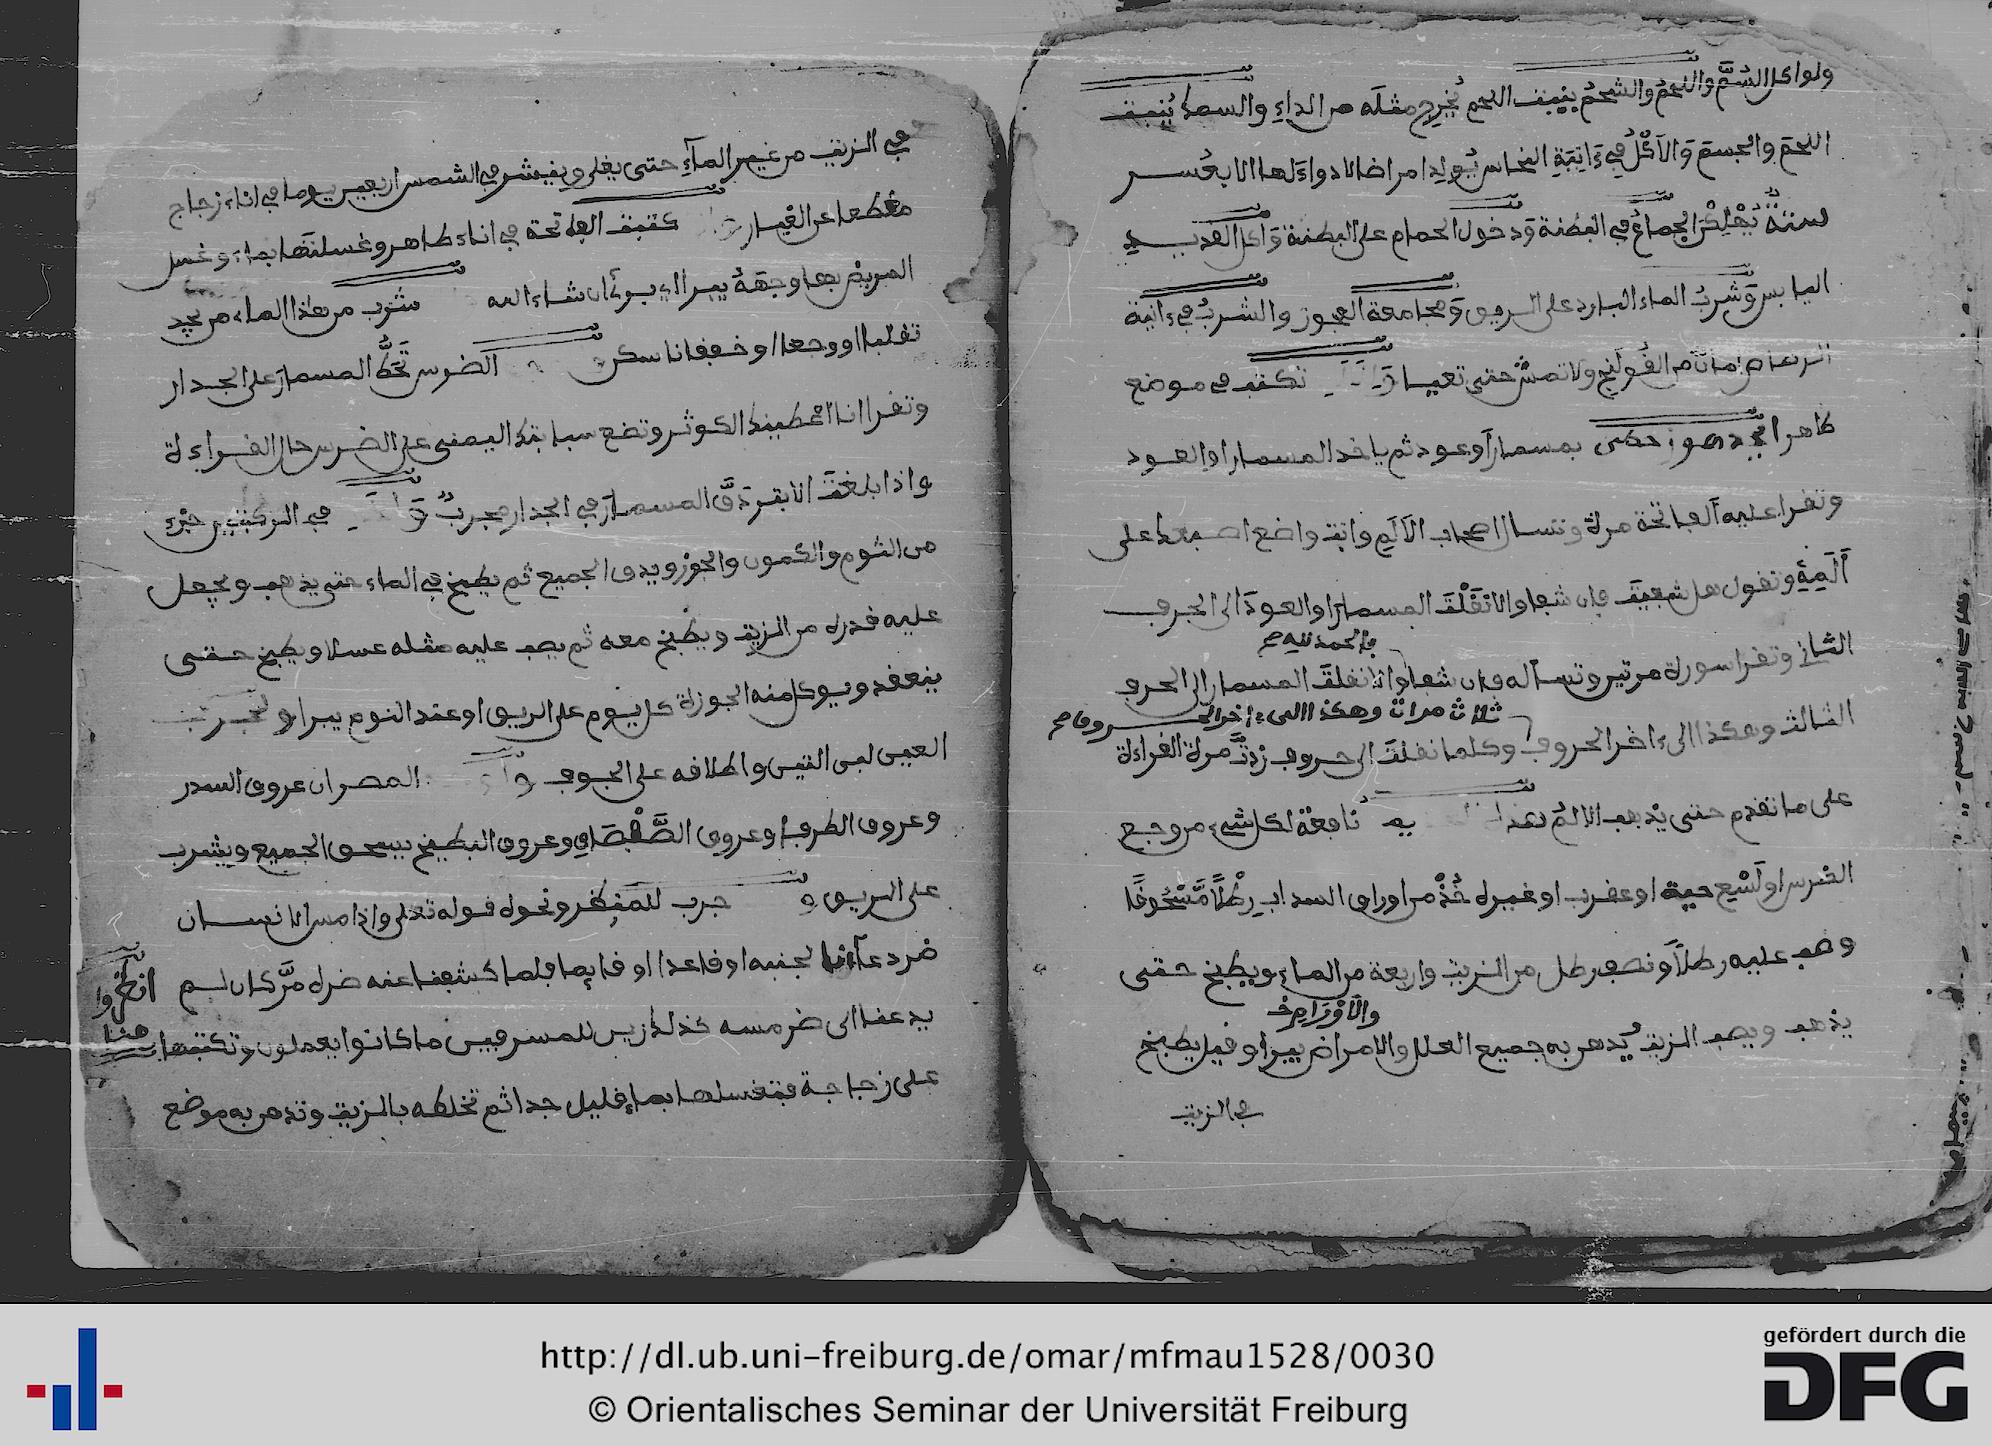 ولو اكل السُّمَّ واللحمُ والشحمُ ينبت اللحم يُخرج مثلَه من الداءِ والسمك يُذيب
اللحمَ والجسمَ وَالاَكْلُ في ءَانِيَةِ النحاس يُولد امراضا لا دواءَ لها الا بعُسر
ستةٌ تُهْلِكُ الجماعُ في البطنة وَدخول الحمام على البطنة وَاكل القديد
اليابس وَشُربُ الماء البارد على الريق وَمجامعة العجوز والشربُ في ءانية
الرصاص امانٌ من القُولَنج ولا تمش حتى تعيا تكتب في موضع
طاهر ابجد هوز حطى بمسمار اَو عود ثم ياخذ المسمار او العود
وتقرا عليه الفاتحة مرة وتسال صاحب الاَلَمِ وانت واضع اصبعك على
اَلَمِهِ وتقول هل شفيت فان شفا والا نَقَلْتَ المسمار او العودَ الى الحرف
الثانى وتقرا سورة مرتين وتساله فان شفا والا نقلتَ المسمار الى الحرف
بالحمد لله صح
الثالث وهكذا الى ءاخر الحروف وكلما نقلتَ الى حروف زدتَّ مرة القراءة
ثلاث مرات وهكذا الى ءاخر الحروف صح
على ما تقدم حتى يذهب الالمُ بعد نافعة لكل شيء من وجع
الضرس او لسْع حية او عقرب او غيره خُذْ من اوراق السذاب رِطْلًا مَّسْحُوقًا
وصب عليه رطلاً ونصف رطل من الزيت واربعة من الماء ويطبخ حتى
يذهب ويصب الزيت يُدهن به جميع العلل والامراض يبرا وقيل يطبخ
والاَوْرَامِ
في الزيت
في الزيت من غير الماَء حتى يغلى وينشر في الشمس اربعين يوما في اناء زجاج
مغطى عن الغبار كتبت الفاتحة في اناء طاهر وغسلتَها بماء وغسل
المريض بها وجهَهُ يبرا شاء الله شُرب من هذا الماء من يجد
تقلبا او وجعا او خفقانا سكن الضرس تَحُكُّ المسمارَ على الجدار
وتقرا انا اعطينك الكوثر وتضع سبابتك اليمنى على الضرس حال القراءة
واذا بلغتَ الابتر دَقَّ المسمارَ في الجدار مجربٌ في الركبتين جزء
من الثوم والكمون والجوز ويدق الجميع ثم يطبخ في الماء حتى يذهب ويجعل
عليه قدره من الزيت ويطبخ معه ثم يصب عليه مثله عسلا ويطبخ حتى
ينعقد ويوكل منه الجوزة كل يوم على الريق او عند النوم يبرا
العيى لبن التيس واطلاقه على الجوف المصران عروق السدر
وعروق الطرفا وعروق الصَّفْصَافِ وعروق البطيخ يسحق الجميع ويشرب
على الريق جرب للمنكر ونحوه قوله تعلى واذا مس الانسان
ضر دعانا لجنبه او قاعدا او قايما فلما كشفنا عنه ضره مَرَّ كان لم
انظروا هنا
يدعنا الى ضر مسه كذلك زين للمسرفين ما كانوا يعملون وتكتبها
على زجاجة فتغسلها بماء قليل جدا ثم تخلطه بالزيت وتدهن به موضع
http://dl.ub.uni-freiburg.de/omar/mfmau1528/0030
© Orientalisches Seminar der Universität Freiburg
gefördert durch die
DFG